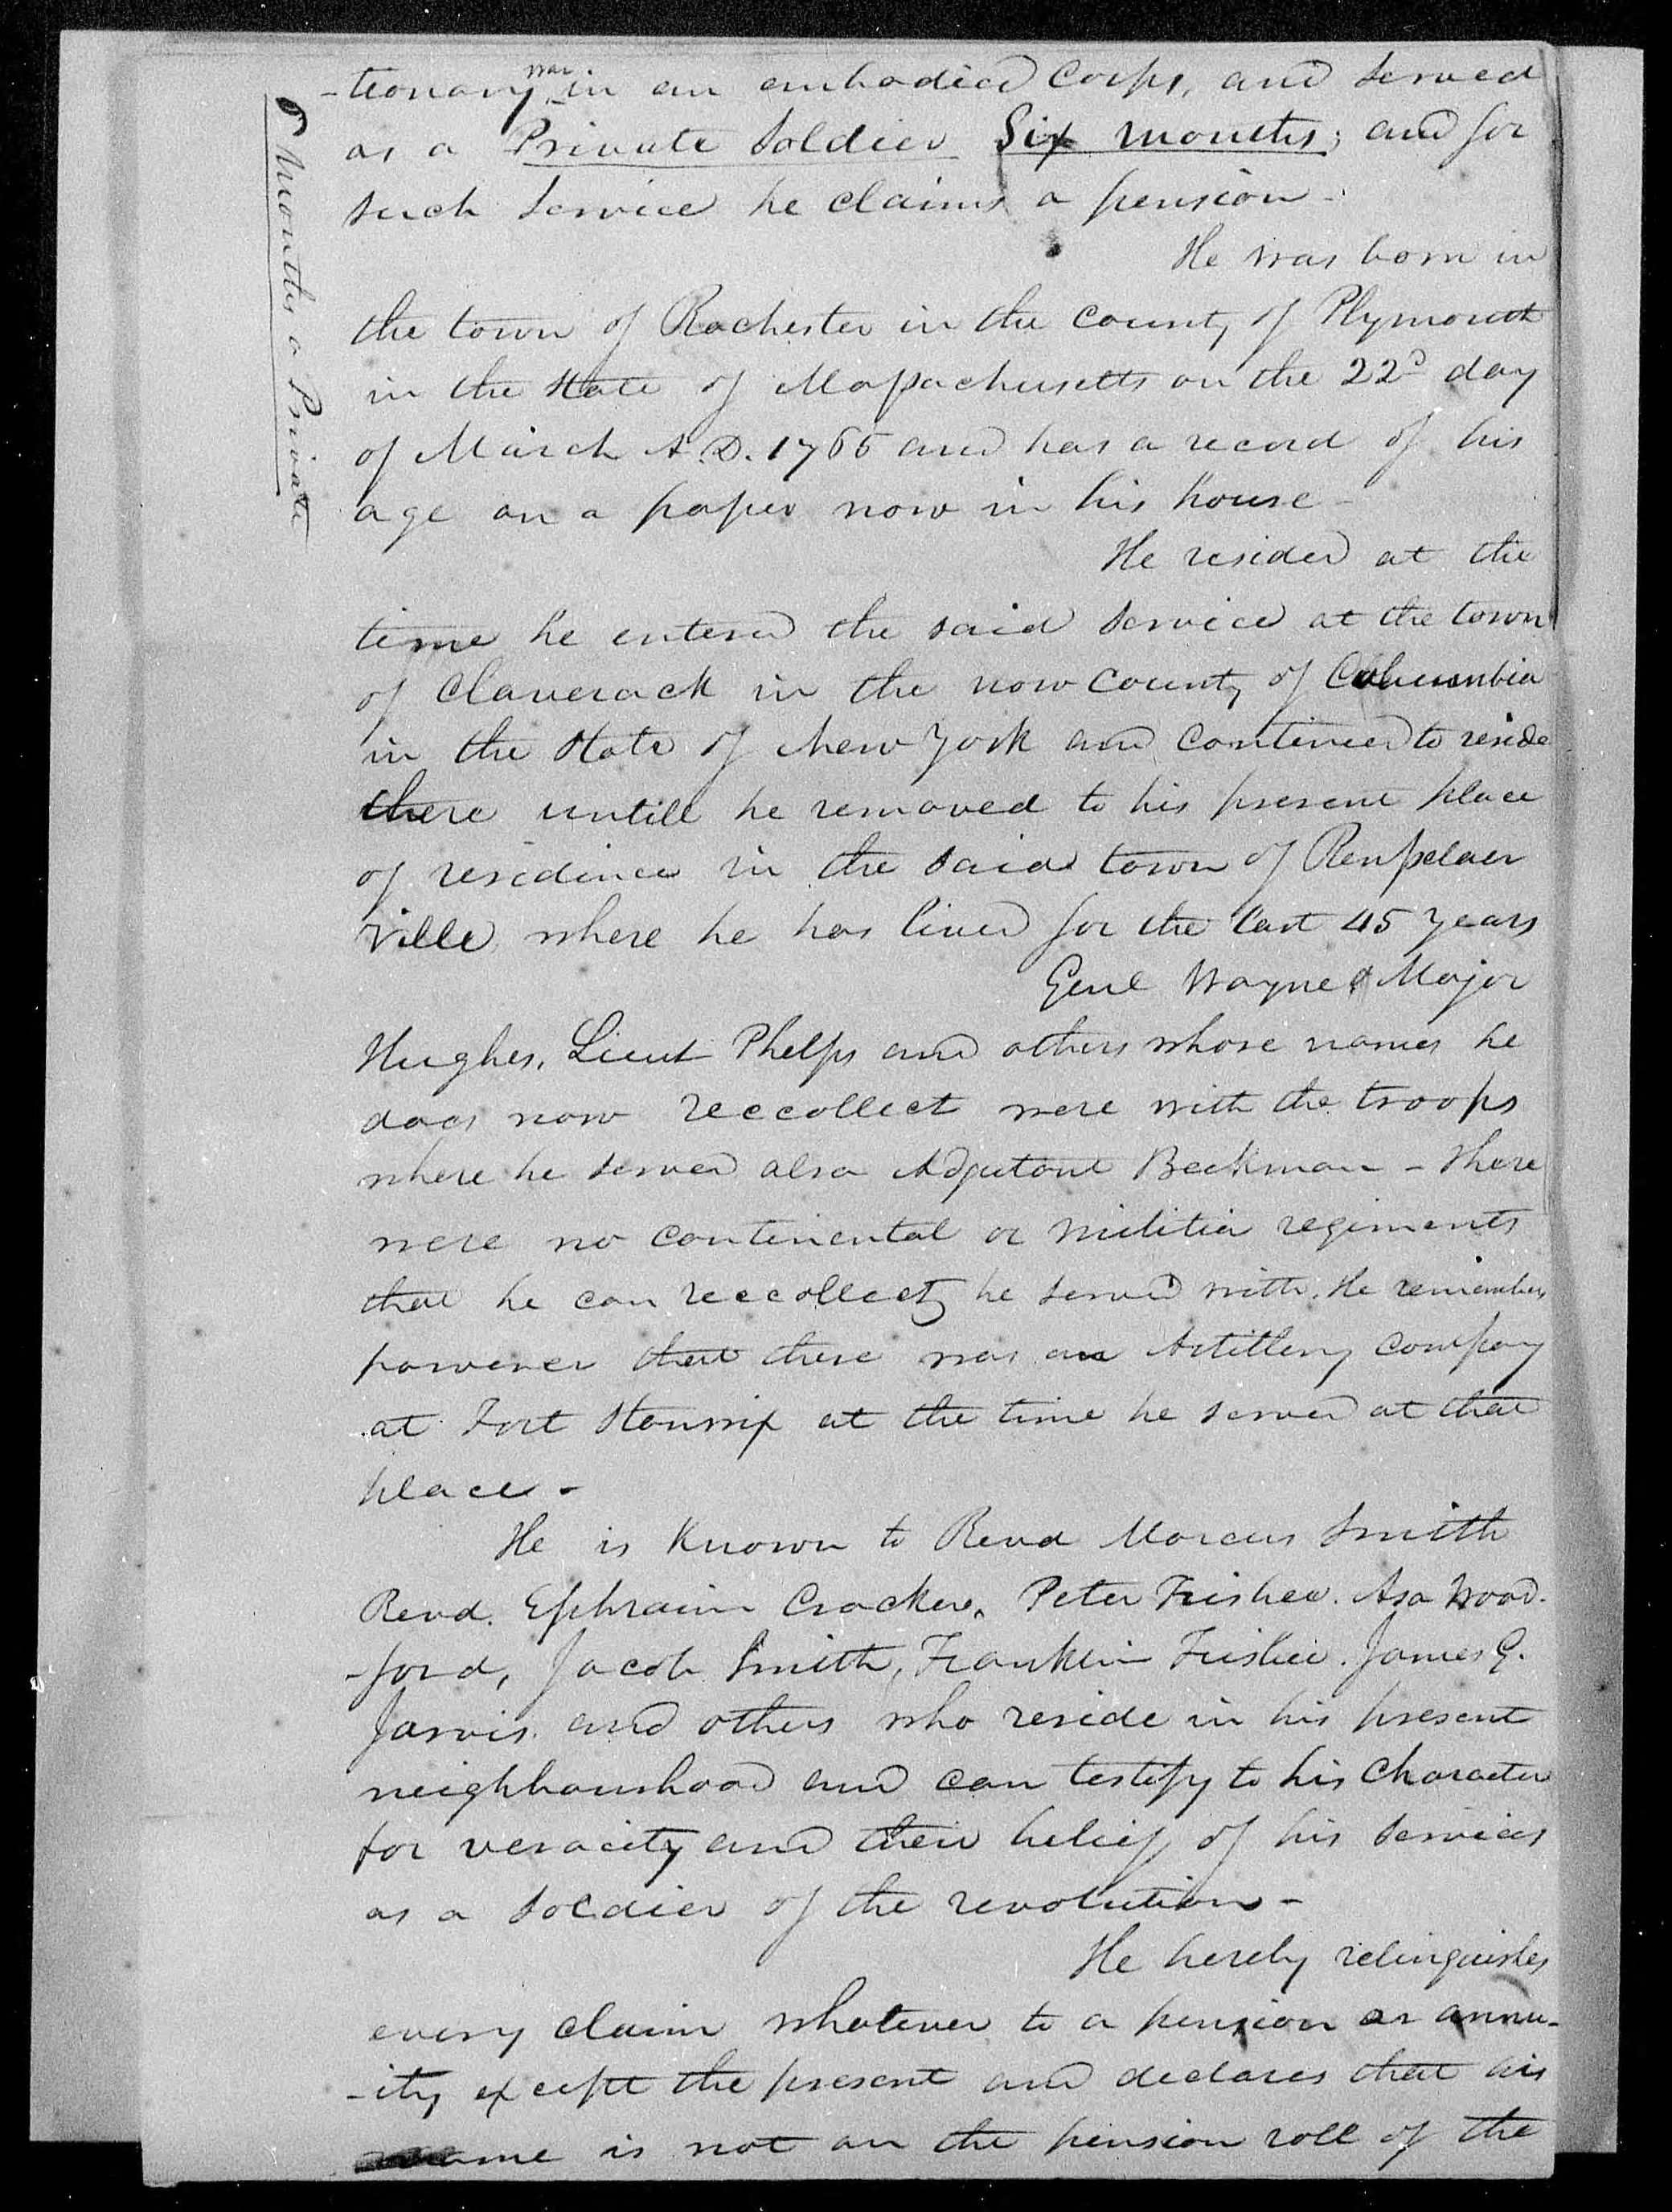 -tionary war in an embodied Corps, and served
as a Private Soldier Six months; and for
such service he claims a pension -
6 Months a Private
He was born in
the town of Rochester in the County of Plymouth
in the State of Massachusetts on the 22d day
of March A.D. 1765 and has a record of his
age on a paper now in his house -
He resided at the
time he entered the said service at the town
of Claverack in the now County of Columbia
in the State of New York and continued to reside
there untill he removed to his present place
of residence in the said town of Rensselaer
ville where he has lived for the last 45 years
Genl Wayne & Major
Hughes, Lieut Phelps and others whose names he
does now reccollect were with the troops
where he served also Adjutant Beekman - There
were no continental or militia regiments
that he can reccollect he served with. He remembers
however that there was an Artillery company
at Fort Stanwix at the time he served at that
place -
He is known to Revd Marcus Smith
Revd. Ephraim Crocker, Peter Frisbee. Asa Wood-
-ford, Jacob Smith, Franklin Frisbee. James G.
Jarvis. and others who reside in his present
neighbourhood and can testify to his Character
for veracity and their belief of his services
as a soldier of the revolution -
He hereby relinquishes
every claim whatever to a pension or annu-
-ity except the present and declares that his
name is not on the pension roll of the